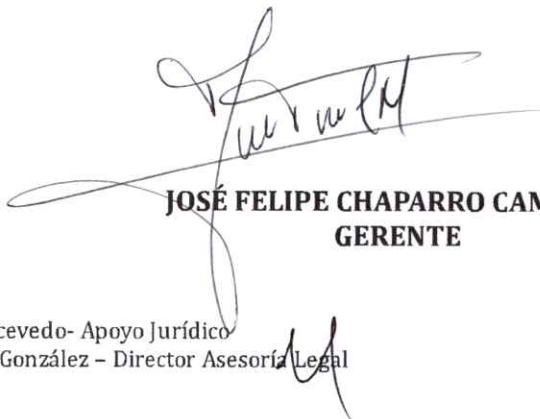 JOSÉ FELIPE CHAPARRO
GERENTE
cevedo- Apoyo Jurídico
González – Director Asesoría Legal